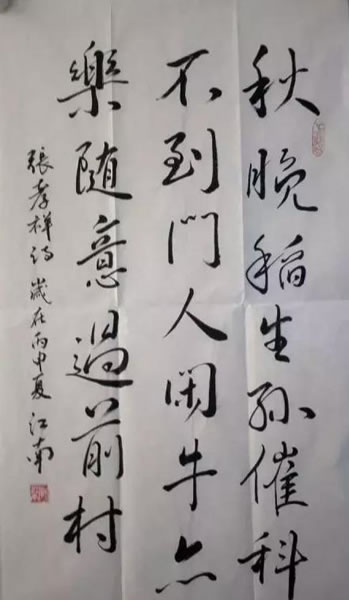 秋晚稻生孙催科
不到門人闲牛亦
樂随意過前村
張孝祥诗 歲在丙申夏 江南